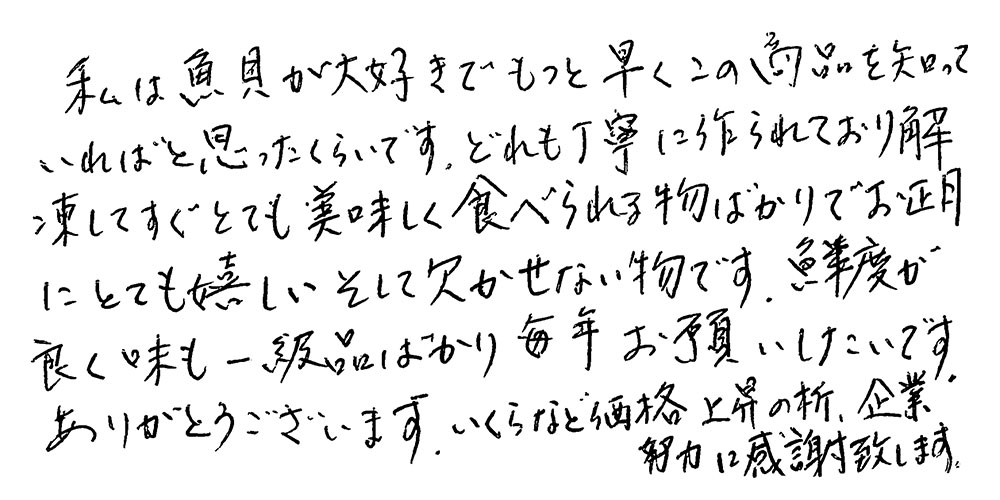 私は魚貝が大好きでもっと早くこの商品を知って
いればと思ったくらいです。どれも丁寧に作られており解
凍してすぐとても美味しく食べられる物ばかりでお正月
にとても嬉しいそして欠かせない物です。鮮度が
良く味も一級品ばかり毎年お願いしたいです。
ありがとうございます。いくらなど価格上昇の折、企業
努力に感謝致します。